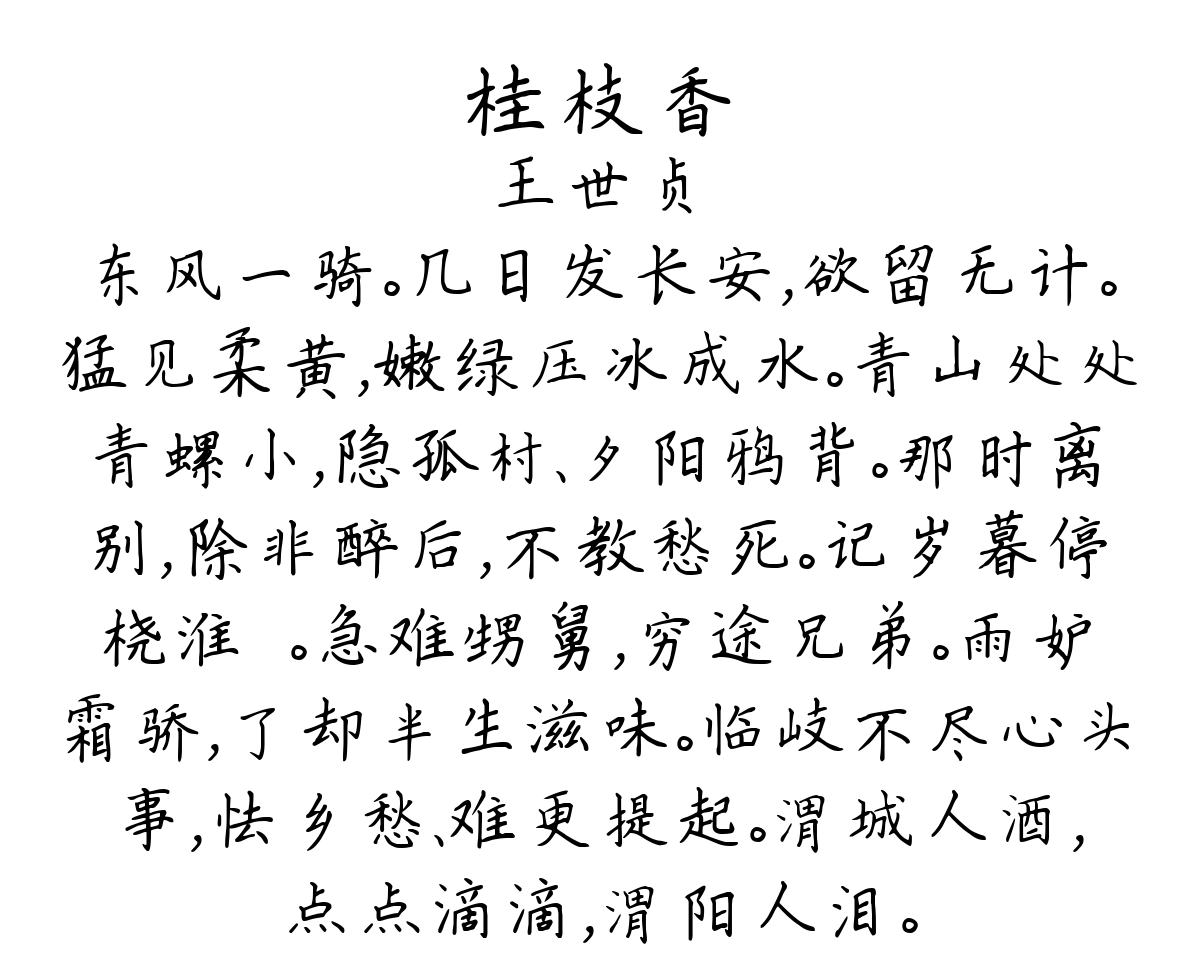 桂枝香
王世贞
东风一骑。几日发长安,欲留无计。
猛见柔黄,嫩绿压冰成水。青山处处
青螺小,隐孤村、夕阳鸦背。那时离
别,除非醉后,不教愁死。记岁暮停
桡淮 。急难甥舅,穷途兄弟。雨妒
霜骄,了却半生滋味。临岐不尽心头
事,怯乡愁、难更提起。渭城人酒,
点点滴滴,渭阳人泪。